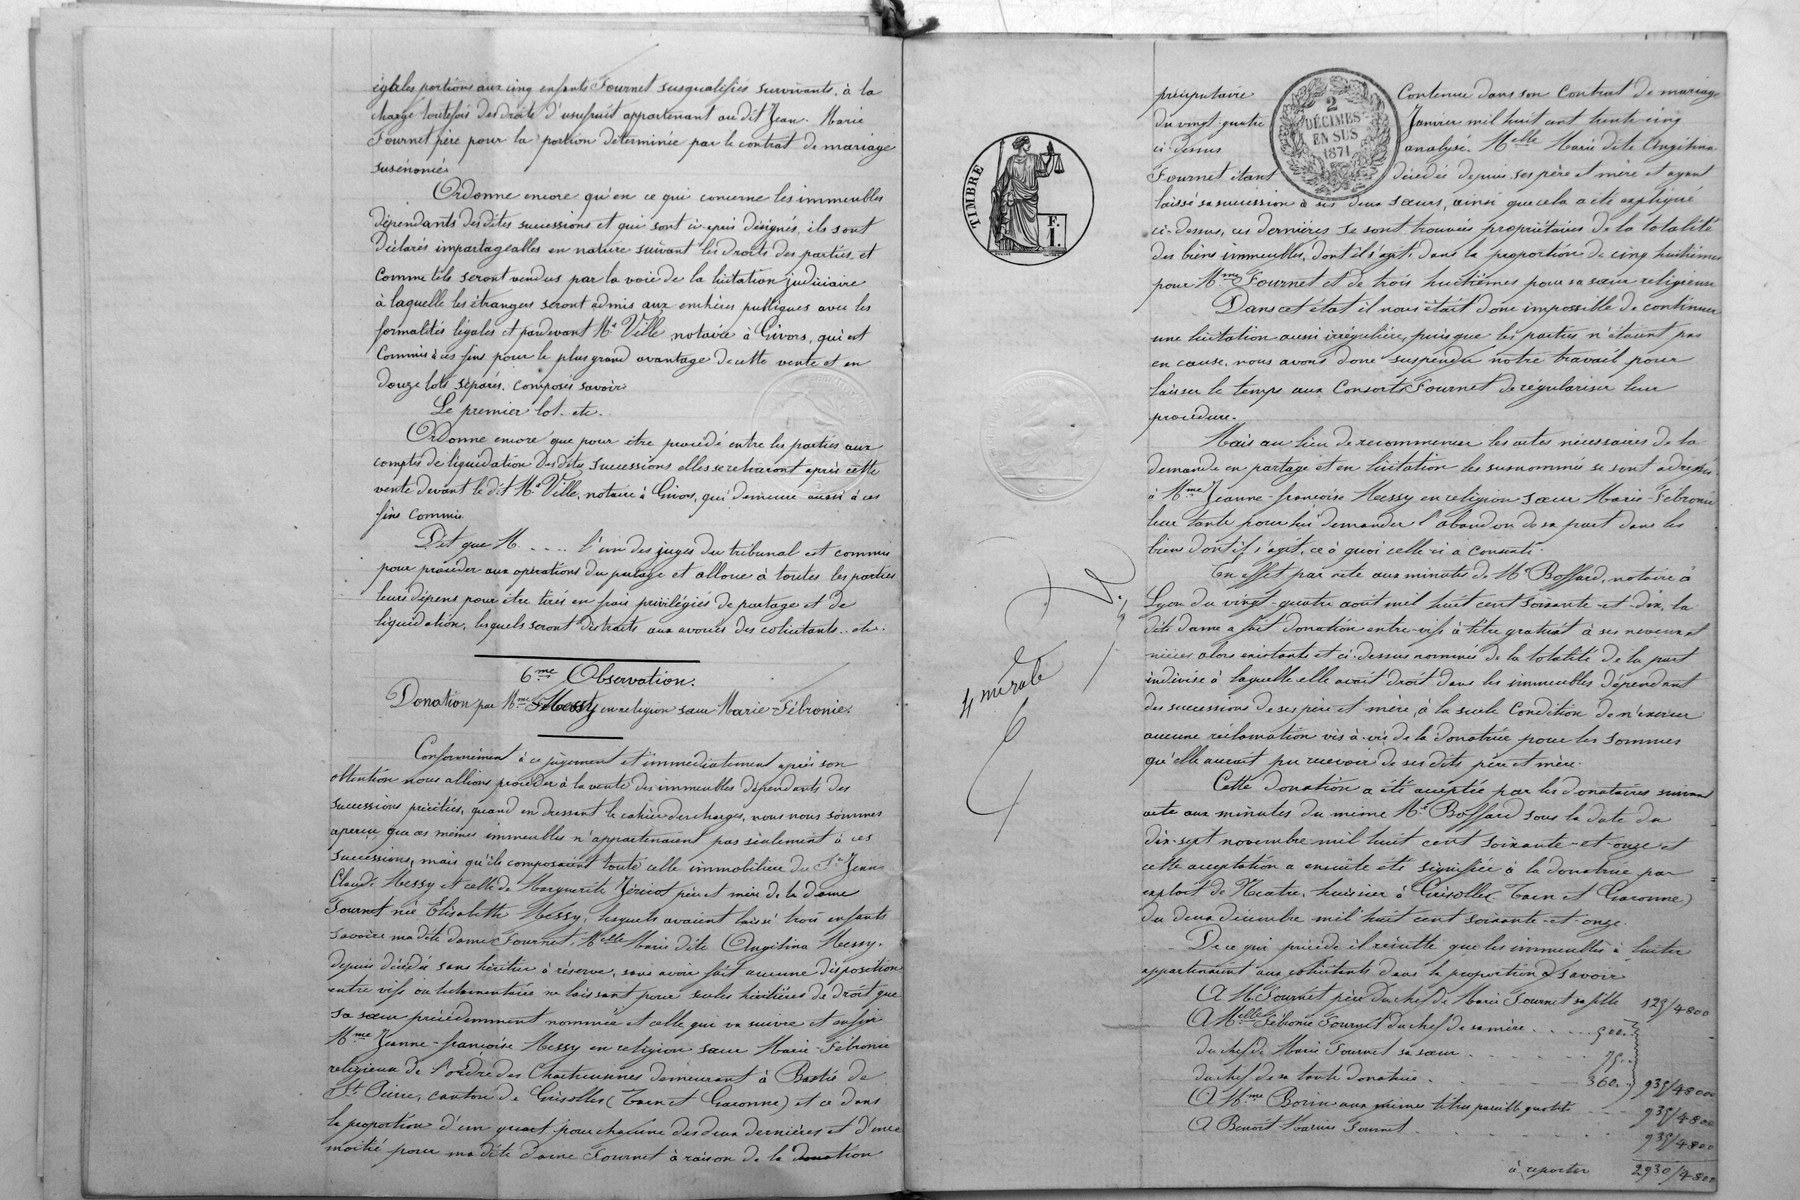 égales portions aux cinq enfants Fournet susqualifiés survivants, à la
charge toutefois des droits d'usufruit appartenant au dit Jean-Marie
Fournet père pour la portion déterminée par le contrat de mariage
susénoncé.
Ordonne encore qu'en ce qui concerne les immeubles
dépendants des dites successions et qui sont ci-après désignés, ils sont
déclarés impartageables en nature suivant les droits des parties, et
comme tels seront vendus par la voie de la licitation judiciaire
à laquelle les étrangers seront admis aux enchères publiques avec les
formalités légales et pardevant Me Ville, notaire à Givors, qui est
commis à ces fins pour le plus grand avantage de cette vente et en
douze lots séparés, composés savoir
Le premier lot. etc.
Ordonne encore que pour être procédé entre les parties aux
comptes de liquidation des dites successions elles se retireront après cette
vente devant le dit Me Ville, notaire à Givors, qui demeure aussi à ces
fins commis.
Dit que M. .... l'un des juges du tribunal est commis
pour procéder aux opérations du partage et alloue à toutes les parties
leurs dépens pour être tirés en frais privilégiés de partage et de
liquidation, lesquels seront distraits aux avoués des colicitants. etc.
6me Observation.
Donation par Mme Messy en religion sœur Marie-Fébronie.
Conformément à ce jugement et immédiatement après son
obtention nous allions procéder à la vente des immeubles dépendants des
successions précitées, quand en dressant le cahier des charges, nous nous sommes
aperçu que ces mêmes immeubles n'appartenaient pas seulement à ces
successions, mais qu'ils composaient toute celle immobilière du Sr Jean
Claude Messy et celle de Marguerite Jéricot père et mère de la dame
Fournet née Elisabeth Messy, lesquels avaient laissé trois enfants
savoir: ma dite dame Fournet, Melle Marie dite Angélina Messy,
depuis décédée sans héritier à réserve, sans avoir fait aucune disposition
entre vifs ou testamentaire ne laissant pour seules héritières de droit que
sa sœur précédemment nommée et celle qui va suivre et enfin
Mme Jeanne-françoise Messy en religion sœur Marie-Fébronie
religieuse de l'ordre des Chartreusines demeurant à Bastié de
St Pierre, canton de Grisolles (Tarn et Garonne) et ce dans
la proportion d'un quart pour chacune des deux dernières et d'une
moitié pour ma dite dame Fournet à raison de la donation
TIMBRE
F.
1.
2
DÉCIMES
EN SUS
1871
4me rôle
préciputaire contenue dans son contrat de mariage
du vingt-quatre Janvier mil huit cent trente-cinq
ci-dessus analysé. Melle Marie dite Angélina
Fournet étant décédée depuis ses père et mère et ayant
laissé sa succession à ses deux sœurs, ainsi que cela a été expliqué
ci-dessus, ces dernières se sont trouvées propriétaires de la totalité
des biens immeubles, dont il s'agit, dans la proportion de cinq huitièmes
pour Mme Fournet et de trois huitièmes pour sa sœur religieuse
Dans cet état il nous était donc impossible de continuer
une licitation aussi irrégulière, puisque les parties n'étaient pas
en cause. nous avons donc suspendu notre travail pour
laisser le temps aux Consorts Fournet de régulariser leur
procédure.
Mais au lieu de recommencer les actes nécessaires de la
demande en partage et en licitation les susnommés se sont adressés
à Mme Jeanne-françoise Messy en religion sœur Marie-Fébronie
leur tante pour lui demander l'abandon de sa part dans les
biens dont il s'agit, ce à quoi celle-ci a consenti.
En effet par acte aux minutes de Me Boffard, notaire à
Lyon du vingt-quatre août mil huit cent soixante-et-dix, la
dite dame a fait donation entre-vifs à titre gratuit à ses neveux et
nièces alors existants et ci-dessus nommés de la totalité de la part
indivise à laquelle elle avait droit dans les immeubles dépendant
des successions de ses père et mère, à la seule condition de n'exercer
aucune réclamation vis-à-vis de la donatrice pour les sommes
qu'elle aurait pu recevoir de ses dits père et mère.
Cette donation a été acceptée par les donataires suivant
acte aux minutes du même Me Boffard sous la date du
dix-sept novembre mil huit cent soixante-et-onze et
cette acceptation a ensuite été signifiée à la donatrice par
exploit de huissier à Grisolles (Tarn et Garonne)
du deux décembre mil huit cent soixante-et-onze.
De ce qui précède il résulte que les immeubles à liciter
appartiennent aux colicitants dans la proportion de savoir
A M. Fournet père du chef de Marie Fournet sa fille 125/4800
A Melle Fébronie Fournet du chef de sa mère ..... 500..
du chef de Marie Fournet sa sœur ...... 75..
du chef de sa tante donatrice. ...... 360.. 935/4800
A Mme Borin aux mêmes titres pareille quotité 935/4800
A Benoit-Marius Fournet ...... 935/4800
à reporter 2930/4800